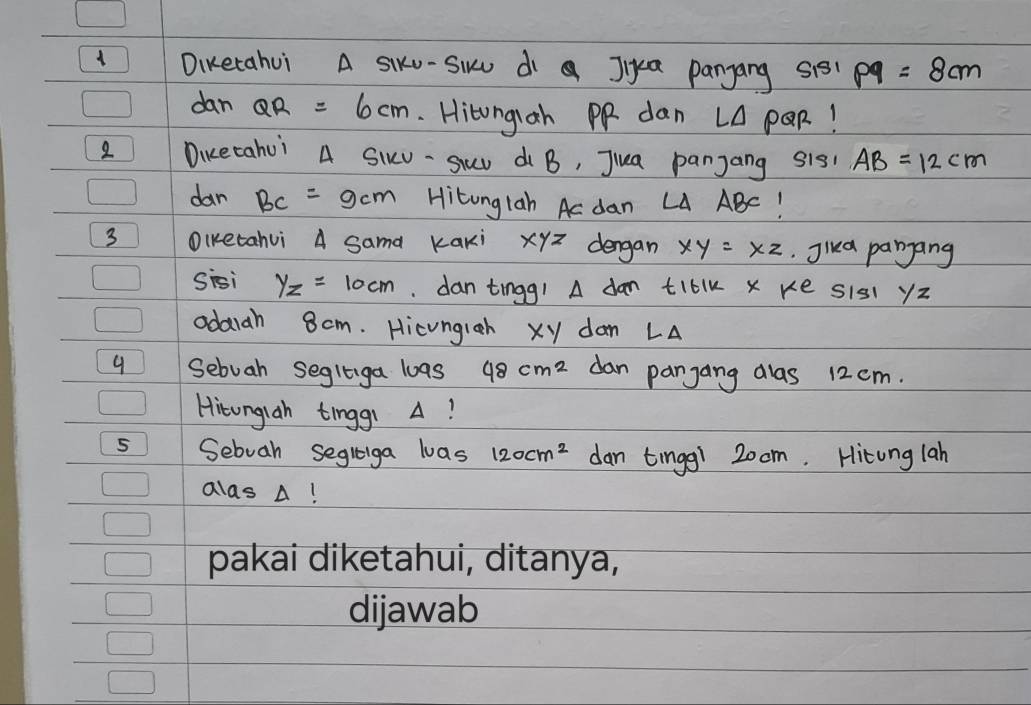 1 Diketahui Δ siku-siku di Q Jika panjang sisi pq = 8cm
dan QR = 6cm. Hitunglah PR dan LΔ PQR!
2 Diketahui Δ siku-siku di B, Jika panjang sisi AB = 12 cm
dan BC = 9cm Hitunglah AC dan LΔ ABC!
3 Diketahui Δ sama kaki XYZ dengan XY = XZ. Jika panjang
sisi YZ = 10cm. dan tinggi Δ dan titik X ke sisi YZ
adalah 8cm. Hitunglah XY dan LΔ
4 Sebuah segitiga luas 48 cm2 dan panjang alas 12 cm.
Hitunglah tinggi Δ!
5 Sebuah segitiga luas 120cm² dan tinggi 20cm. Hitunglah
alas Δ!
pakai diketahui, ditanya,
dijawab